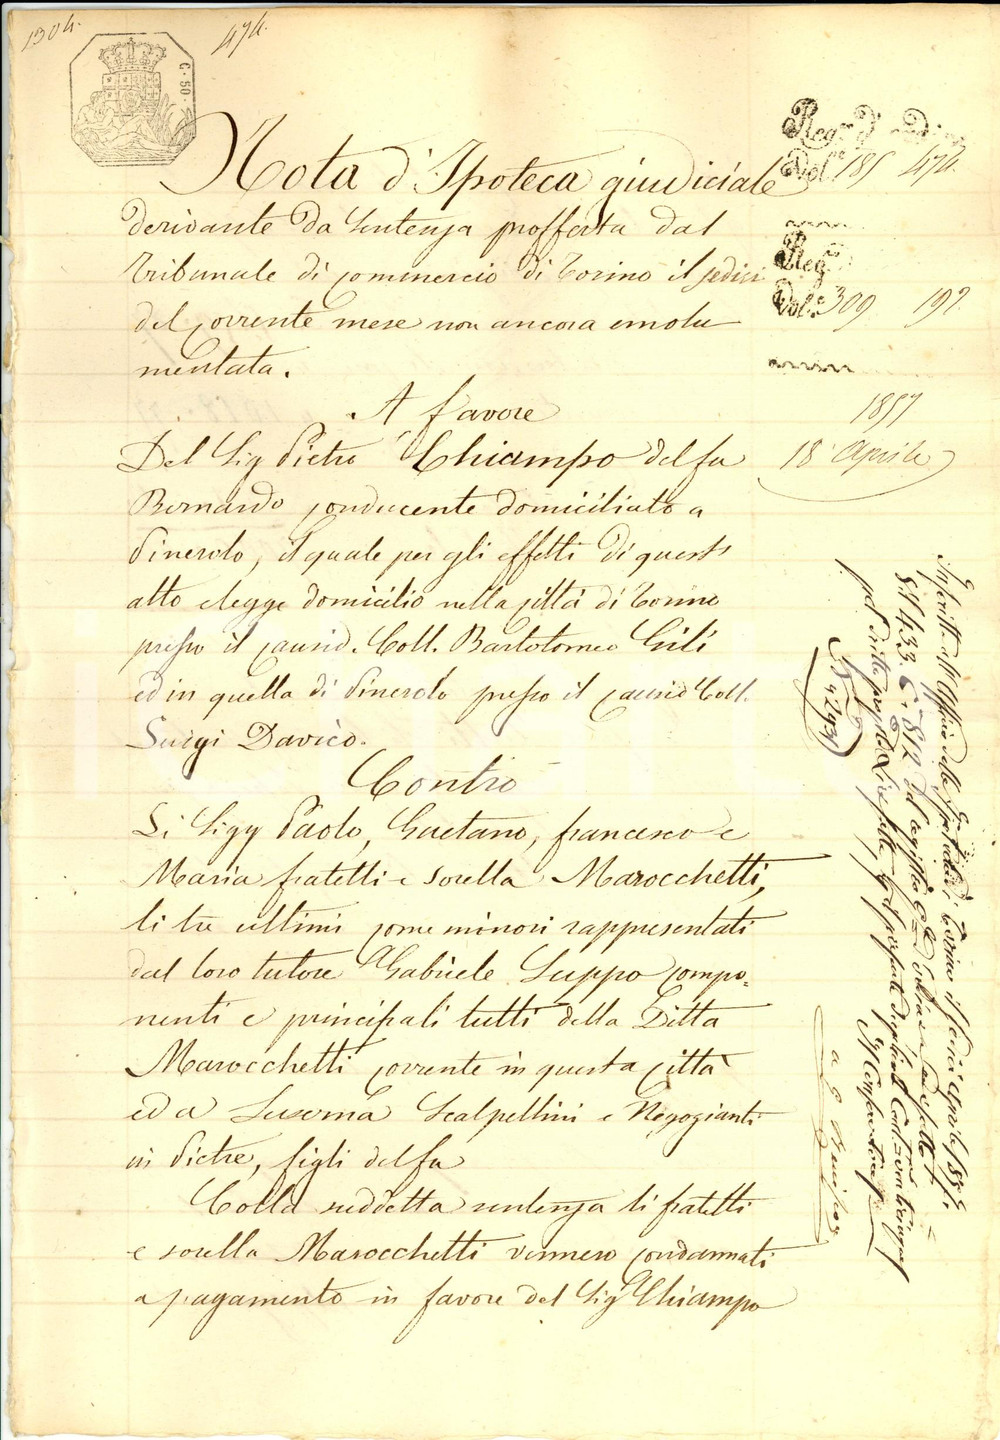 1304.
474.
C. 50
Nota d'Ipoteca giudiciale
derivante da sentenza profferta dal
Tribunale di commercio di Torino il sedici
del corrente mese non ancora emolu
mentata.
A favore
Del Sig Pietro Chiampo del fu
Bernardo conducente domiciliato a
Pinerolo, il quale per gli effetti di questo
atto elegge domicilio nella città di Torino
presso il causid. Coll. Bartolomeo Gili
ed in quella di Pinerolo presso il causid Coll.
Luigi Davico.
Contro
Li Sigg Paolo, Gaetano, francesco e
Maria fratelli e sorella Marocchetti,
li tre ultimi come minori rappresentati
dal loro tutore Gabriele Suppo compo=
nenti e principali tutti della Ditta
Marocchetti corrente in questa città
ed a Luserna Scalpellini e Negozianti
in Pietre, figli del fu
Colla suddetta sentenza li fratelli
e sorella Marocchetti vennero condannati
a pagamento in favore del Sig Chiampo
Reg. d'
Vol. 185 474.
Reg.
Vol. 309 192.
1857
18 Aprile